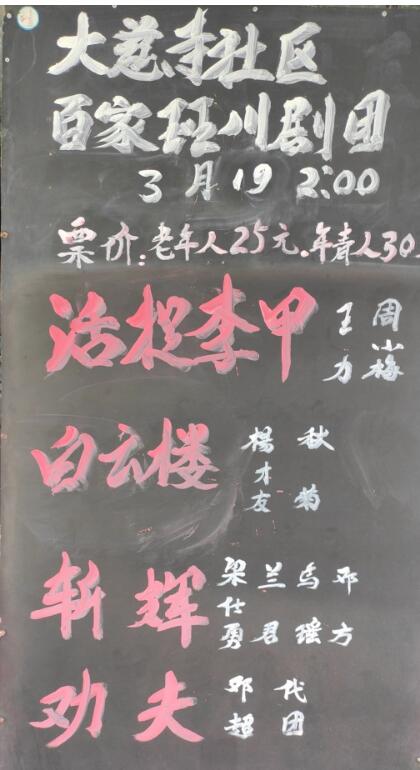 大慈寺社区
百家班川剧团
3月19 2:00
票价:老年人25元.年青人30
活捉李甲 王力 周小梅
白云楼 杨才友 秋菊
斩辉 梁仕勇 兰君 乌瑶 邓方
劝夫 邓超 代团